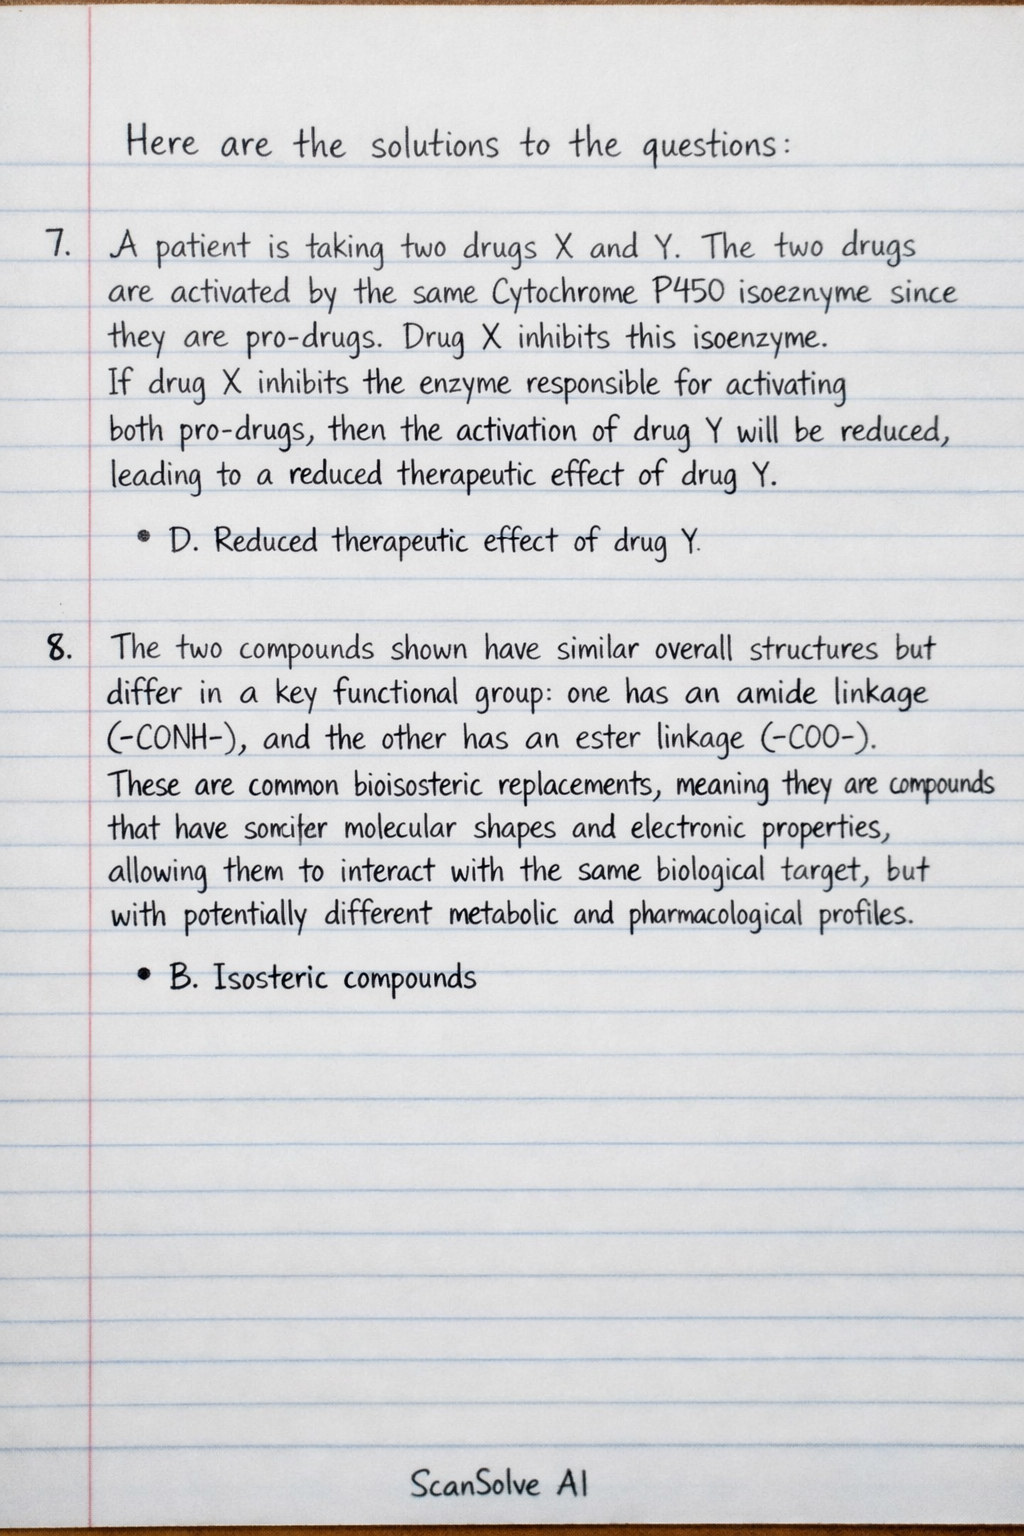 Here are the solutions to the questions:
7. A patient is taking two drugs X and Y. The two drugs
are activated by the same Cytochrome P450 isoeznyme since
they are pro-drugs. Drug X inhibits this isoenzyme.
If drug X inhibits the enzyme responsible for activating
both pro-drugs, then the activation of drug Y will be reduced,
leading to a reduced therapeutic effect of drug Y.
• D. Reduced therapeutic effect of drug Y.
8. The two compounds shown have similar overall structures but
differ in a key functional group: one has an amide linkage
(-CONH-), and the other has an ester linkage (-COO-).
These are common bioisosteric replacements, meaning they are compounds
that have molecular shapes and electronic properties,
allowing them to interact with the same biological target, but
with potentially different metabolic and pharmacological profiles.
• B. Isosteric compounds
ScanSolve AI